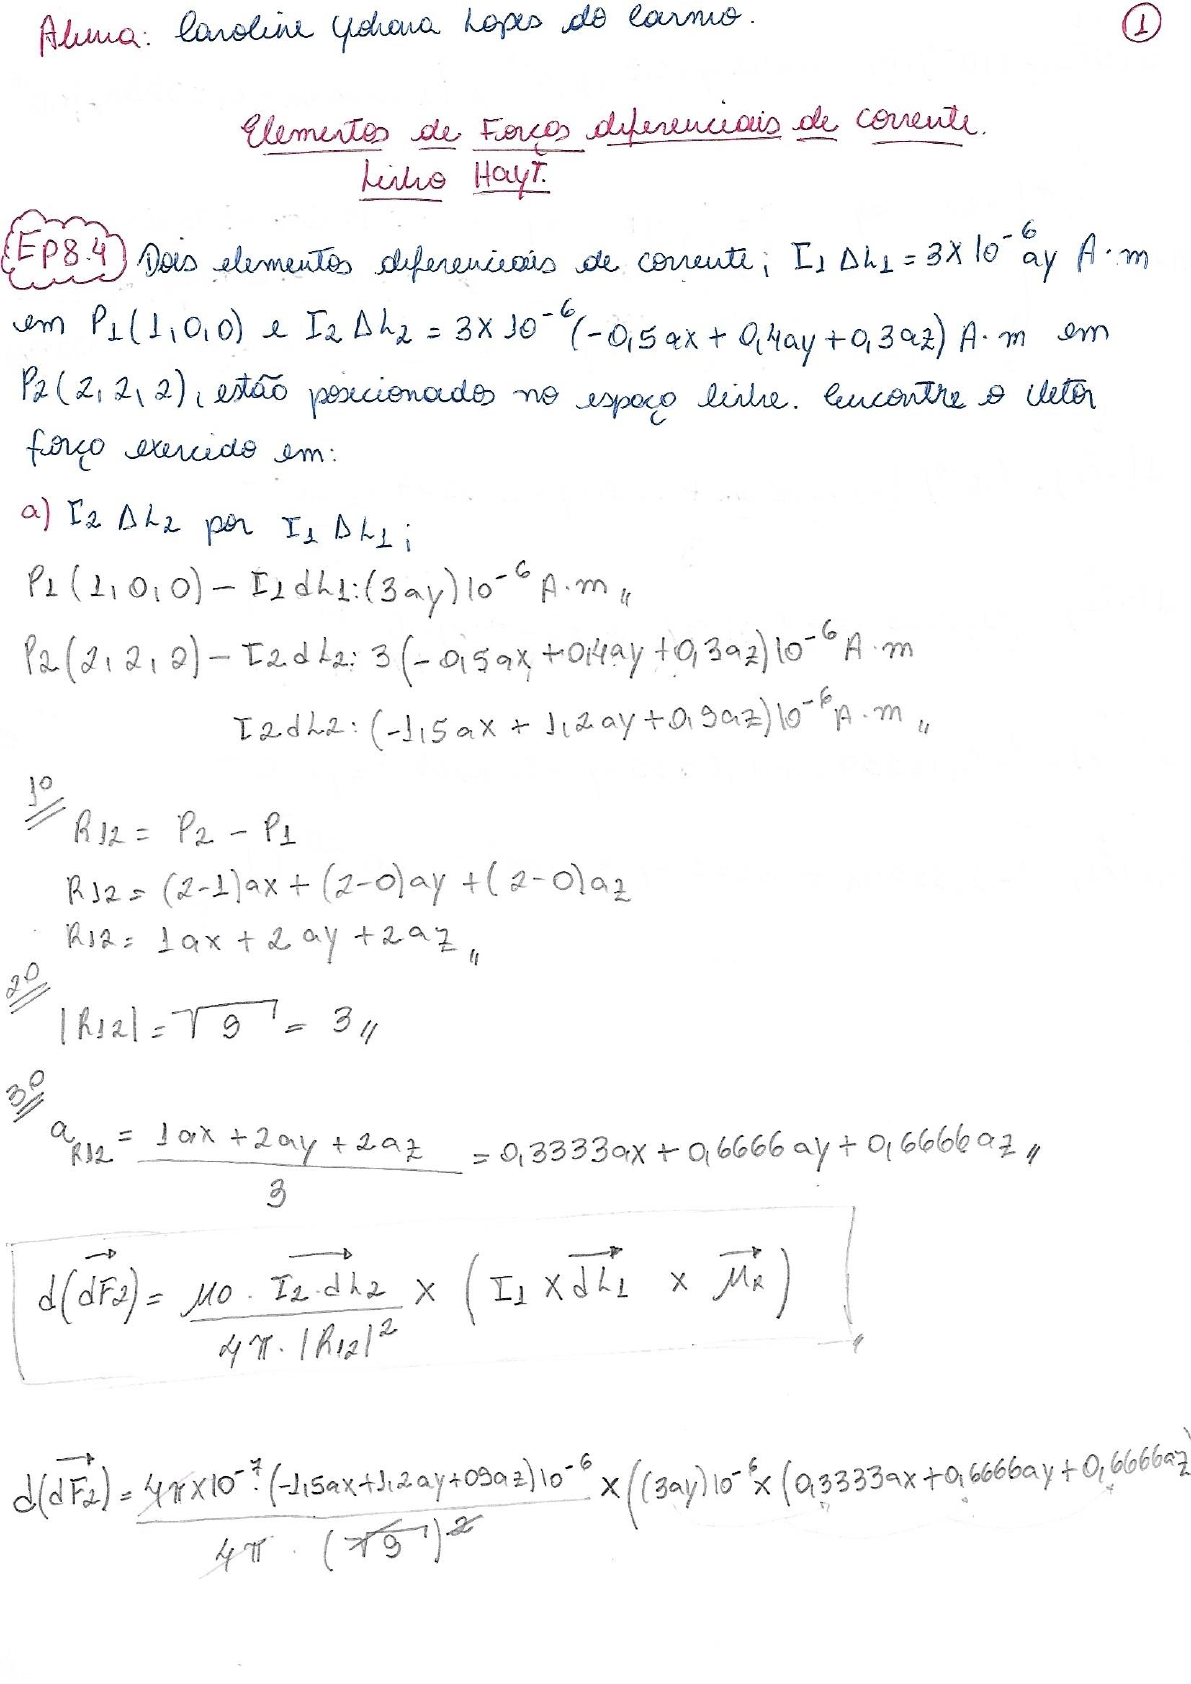 Aluna: Caroline Yohana Lopes do Carmo.
1
Elementos de Forças diferenciais de corrente.
Livro Hayt.
EP8.4 Dois elementos diferenciais de corrente; I1 ΔL1 = 3x10⁻⁶ ay A·m
em P1(1,0,0) e I2 ΔL2 = 3x10⁻⁶(-0,5ax + 0,4ay + 0,3az) A·m em
P2(2,2,2), estão posicionados no espaço livre. Encontre o vetor
força exercido em:
a) I2 ΔL2 por I1 ΔL1;
P1(1,0,0) - I1dL1:(3ay)10⁻⁶ A·m
P2(2,2,2) - I2dL2: 3(-0,5ax+0,4ay+0,3az)10⁻⁶ A·m
I2dL2: (-1,5ax + 1,2ay + 0,9az)10⁻⁶ A·m
1º
R12 = P2 - P1
R12 = (2-1)ax + (2-0)ay + (2-0)az
R12 = 1ax + 2ay + 2az
2º
|R12| = √9 = 3
3º
aR12 = 1ax + 2ay + 2az / 3 = 0,3333ax + 0,6666ay + 0,6666az
d(dF2) = μ0 · I2·dL2 / 4π·|R12|² x (I1 x dL1 x μR)
d(dF2) = 4πx10⁻⁷·(-1,5ax+1,2ay+09az)10⁻⁶ / 4π · (√9)² x ((3ay)10⁻⁶ x (0,3333ax+0,6666ay+0,6666az)